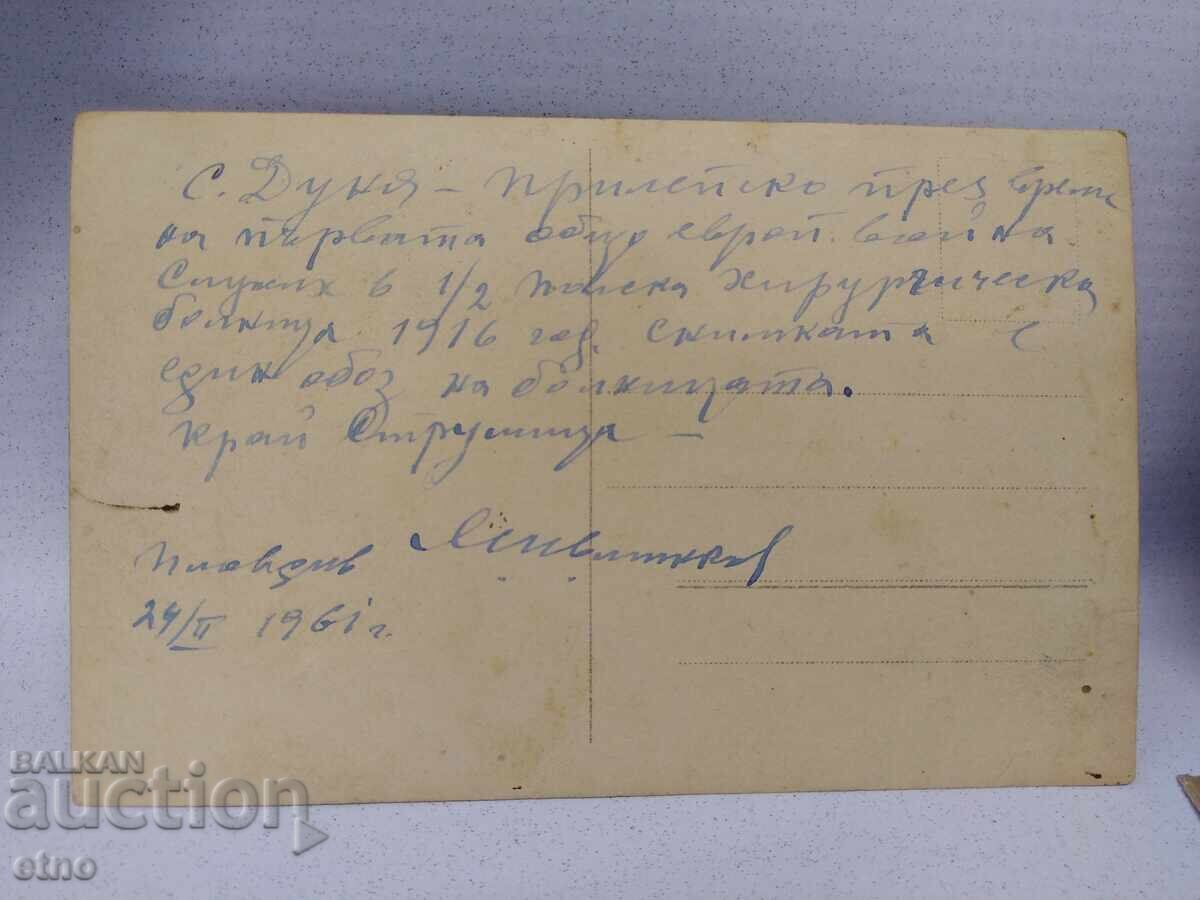 с. Дуня – Прилепско през време
на първата общо европ. война
Служих в 1/2 полска хирургическа
болница 1916 год. снимката е
един обоз на болницата.
край Струмица –
Пловдив
24/II 1961 г.
BALKAN
auction
etno